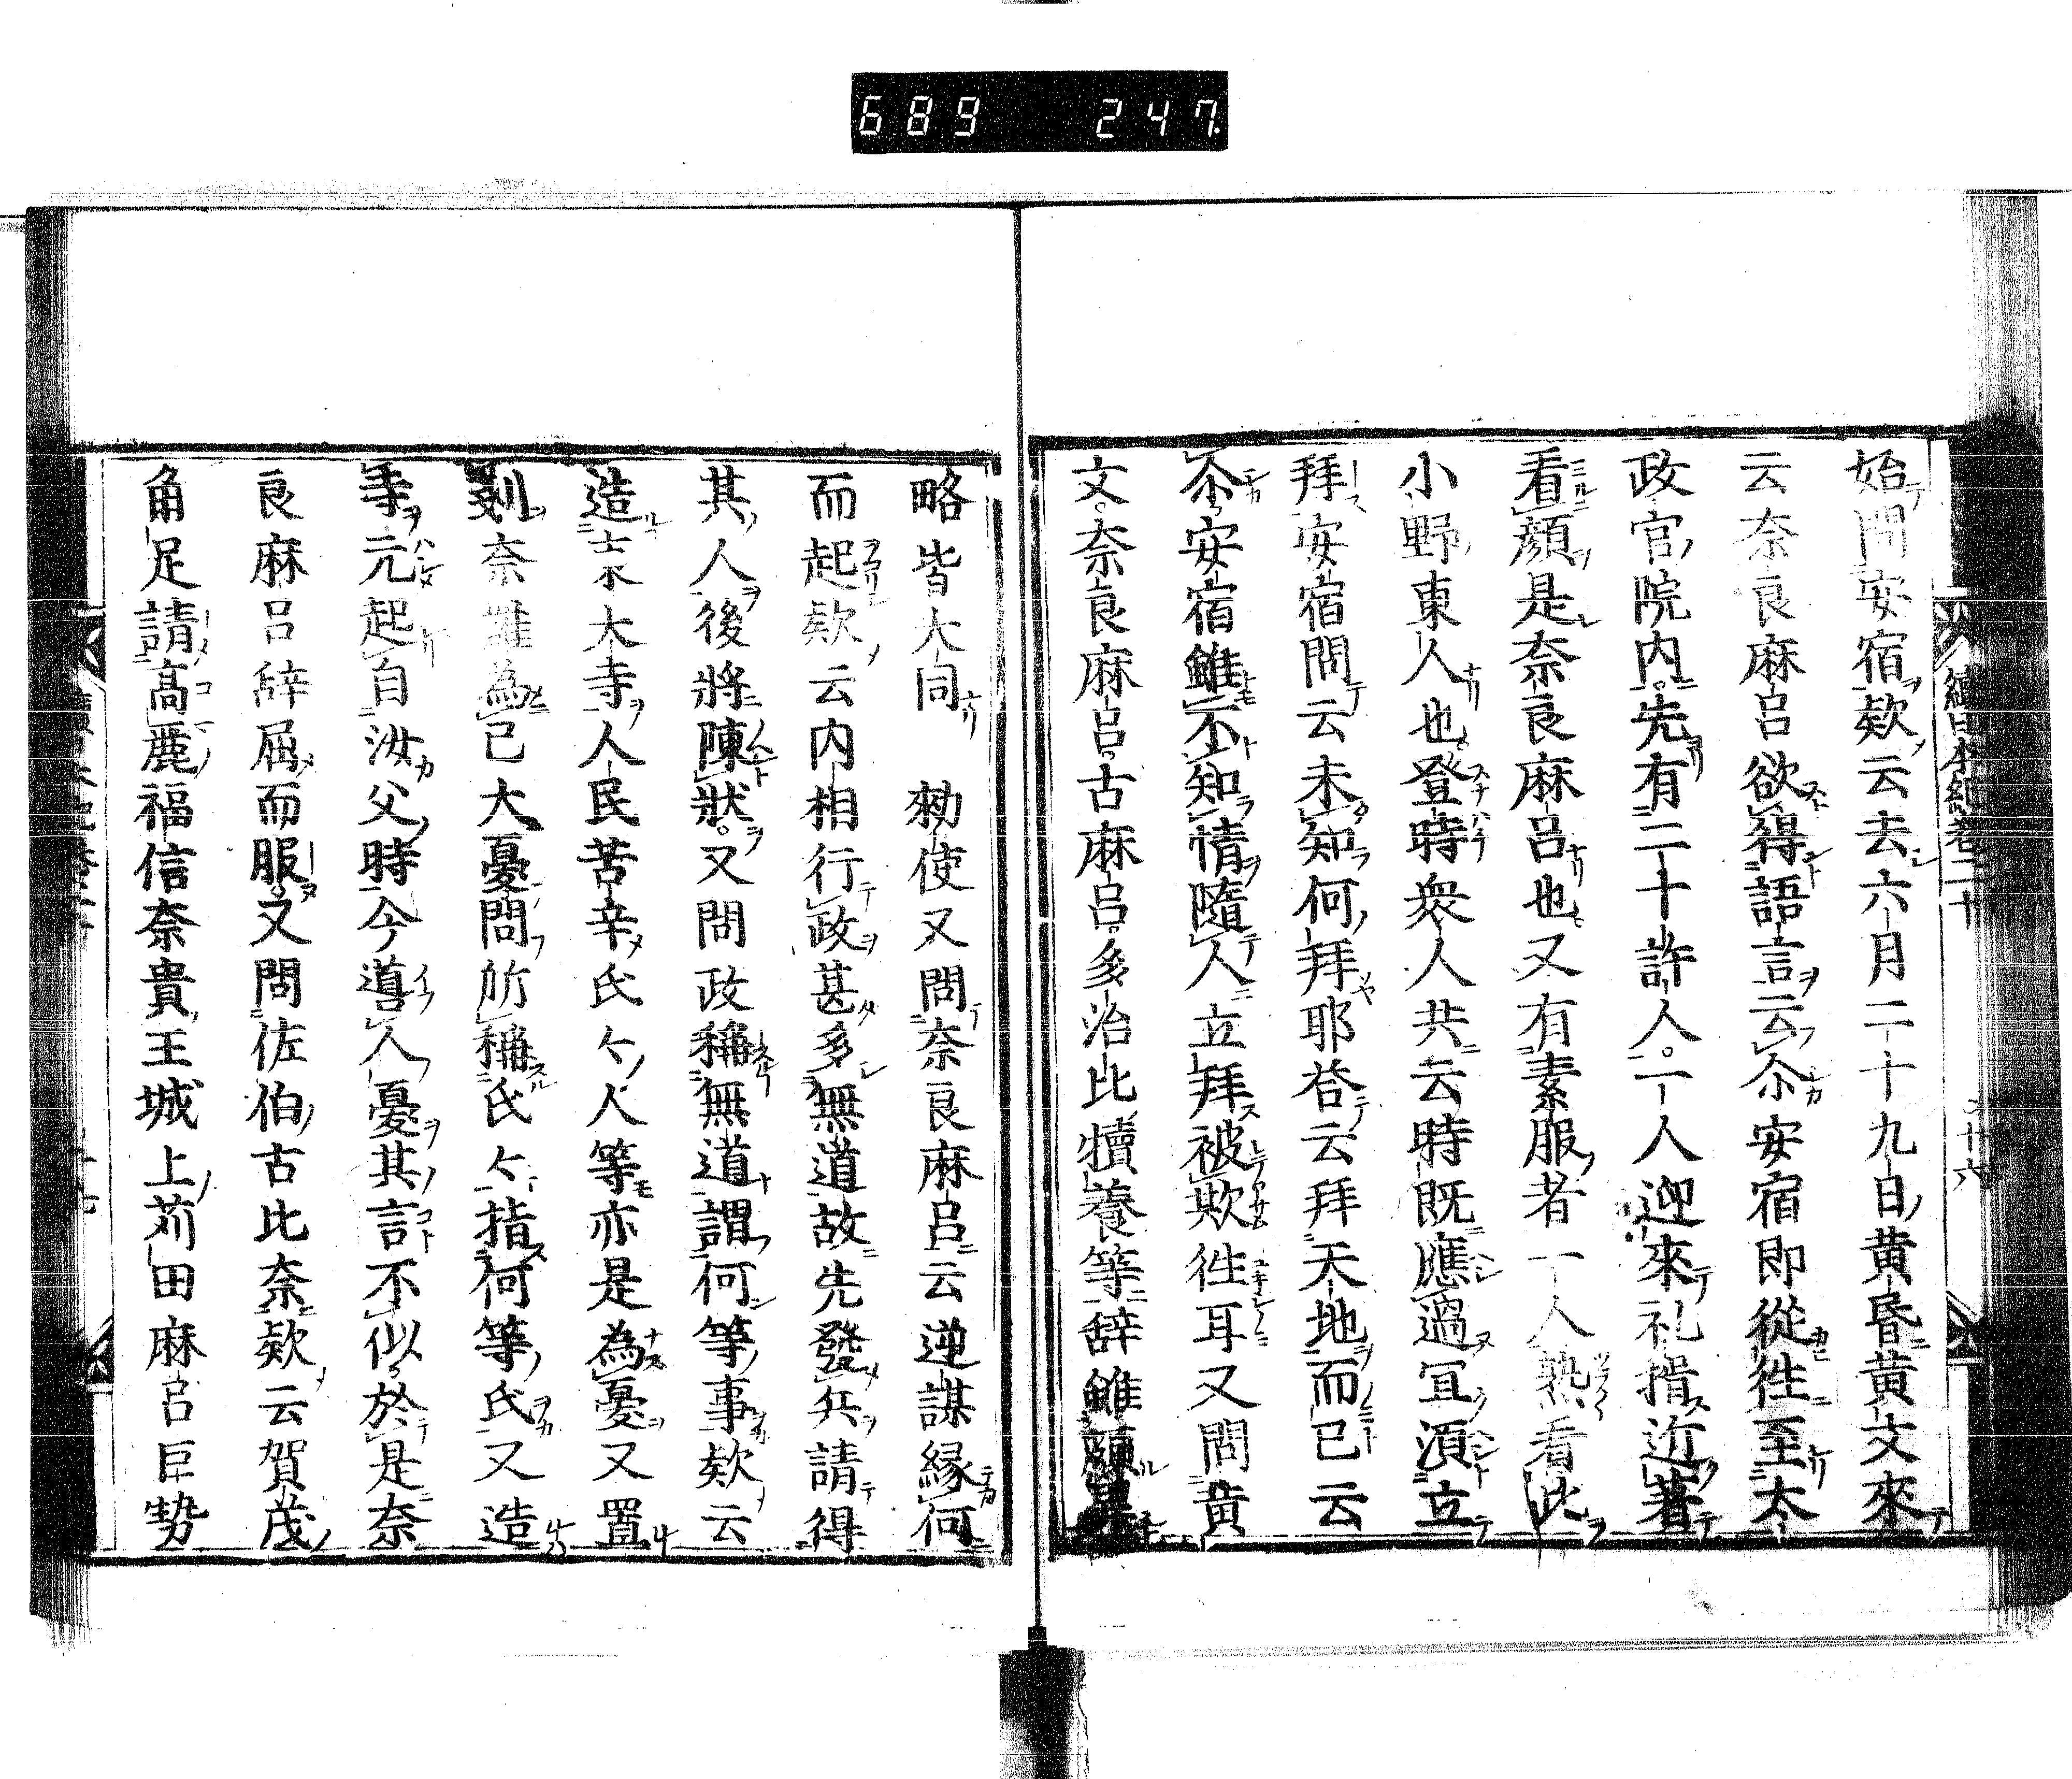 689 247
續日本紀卷二十 二十六
始問安宿欵云去六月二十九日黄昏黄文來
云奈良麻呂欲得語言云尒安宿即從徃至太
政官院内先有二十許人一人迎來礼揖近著
看顔是奈良麻呂也又有素服者一人熟看此
小野東人也登時衆人共云時既應過冝湏立
拜安宿問云未知何拜耶荅云拜天地而已云
尒安宿雖不知情隨人立拜被欺徃耳又問黄
文奈良麻呂古麻呂多治比犢養等辞雖頗
略皆大同 勑使又問奈良麻呂云逆謀縁何
而起欵云内相行政甚多無道故先發兵請得
其人後將陳狀又問政稱無道謂何等事欵云
造東大寺人民苦辛氏々人等亦是為憂又置
奈羅為已大憂問所稱氏々指何等氏又造
寺元起自汝父時今噵人憂其言不似於是奈
良麻呂辞屈而服又問佐伯古比奈欵云賀茂
角足請高麗福信奈貴王城上苅田麻呂巨勢